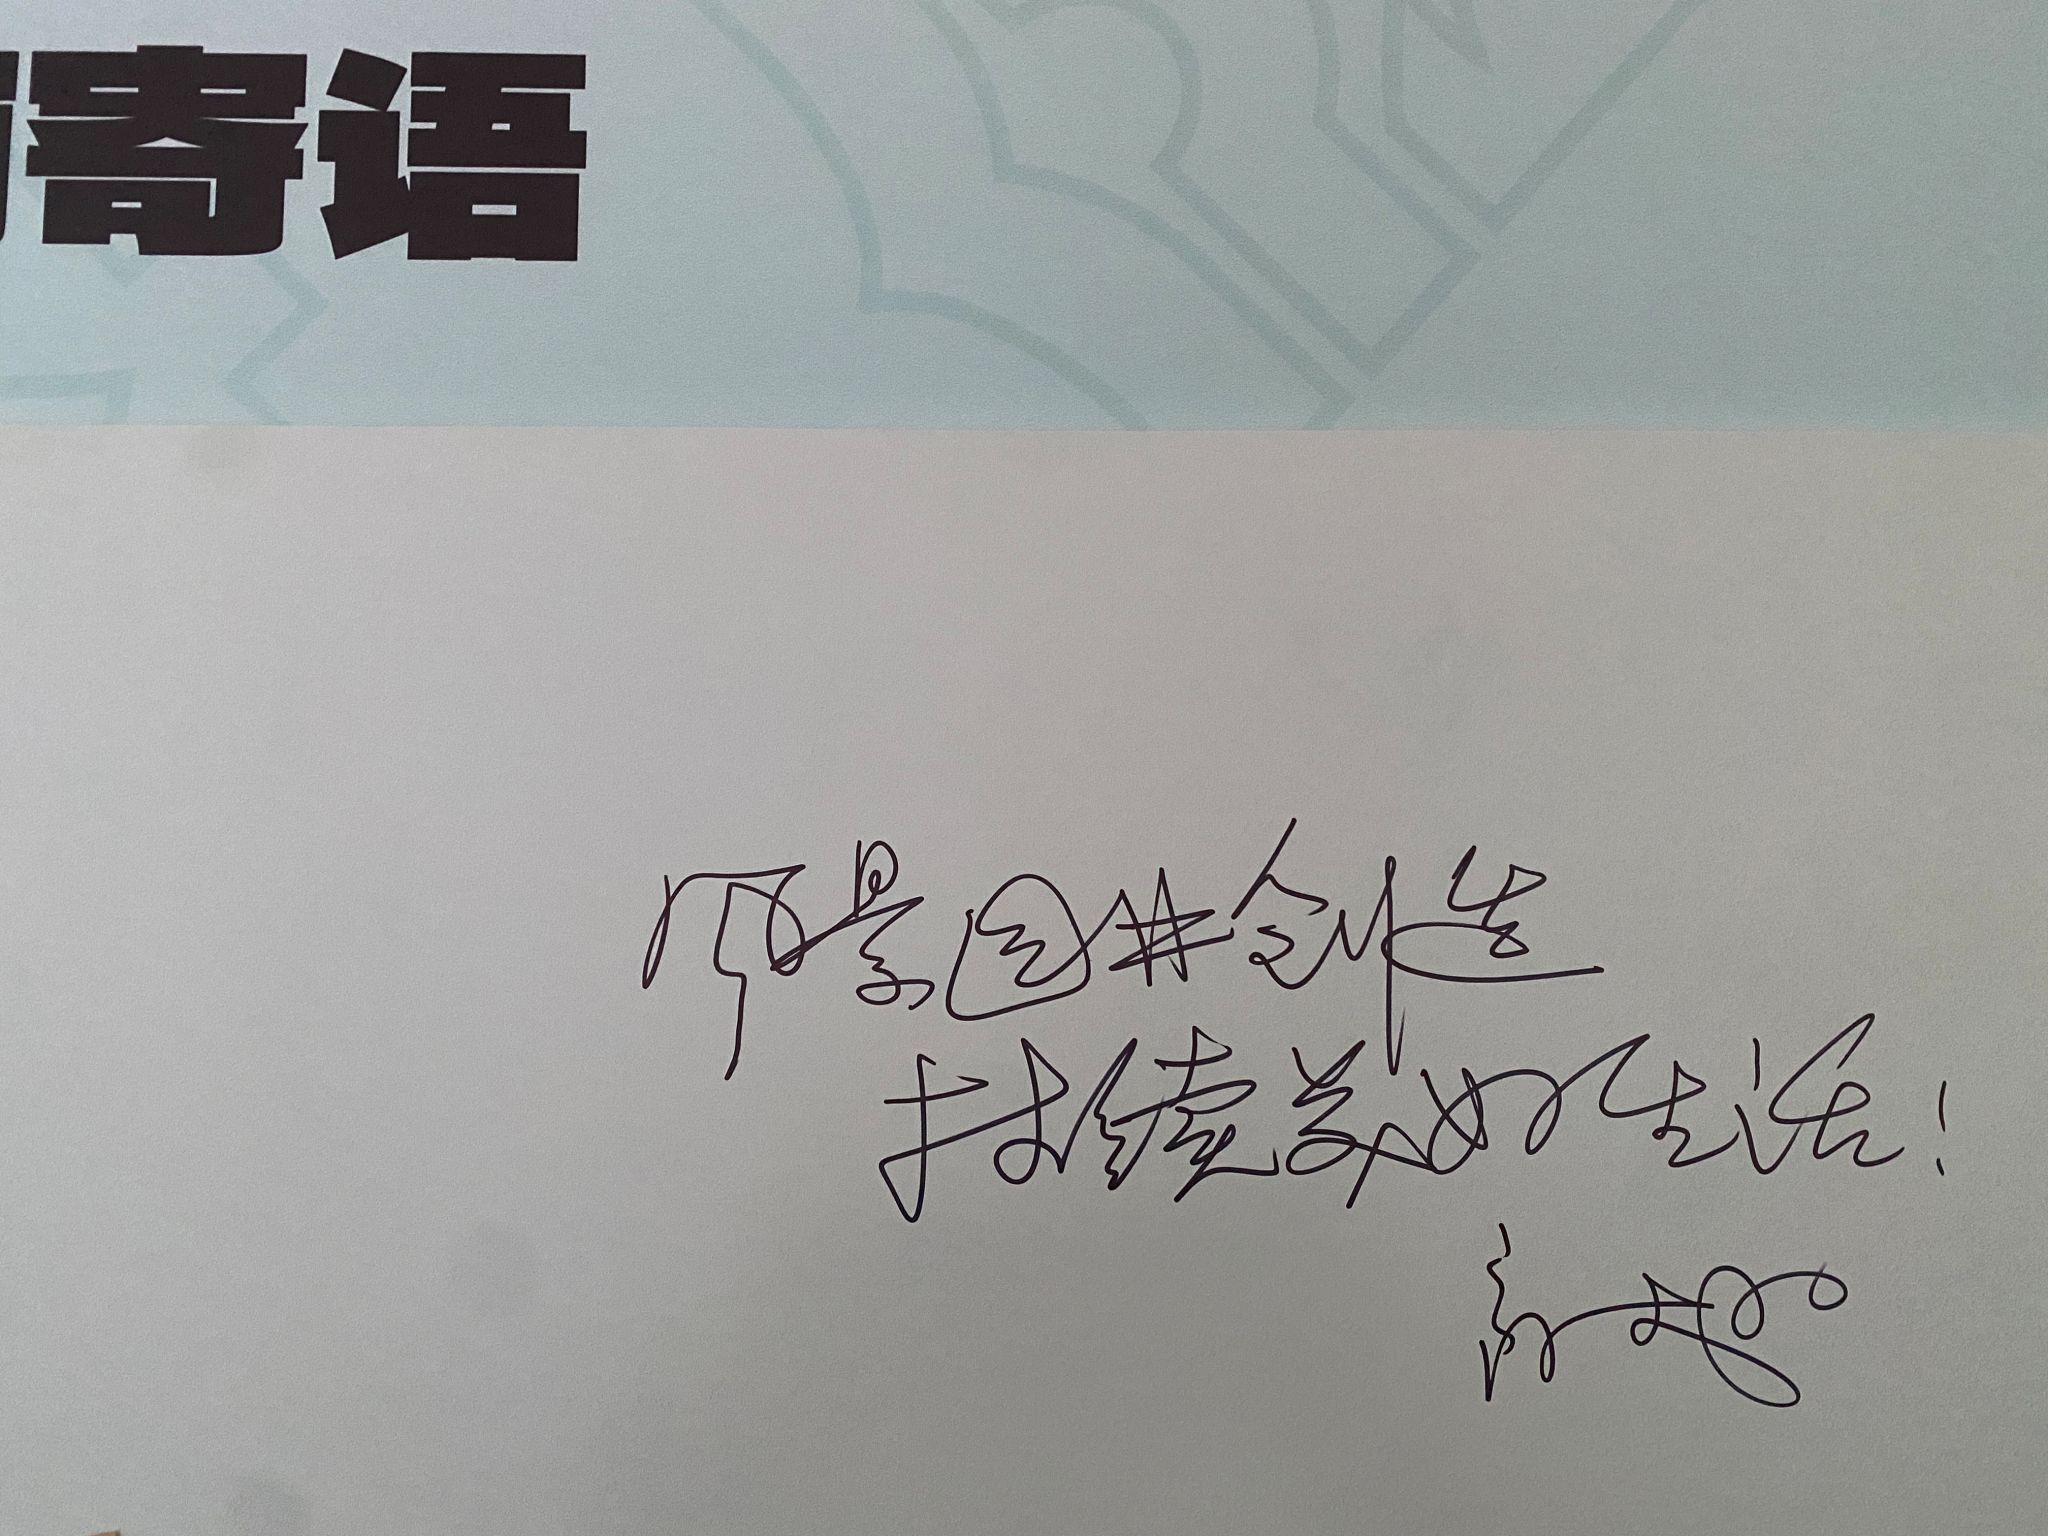 寄语
风景园林创造
持续美好生活!